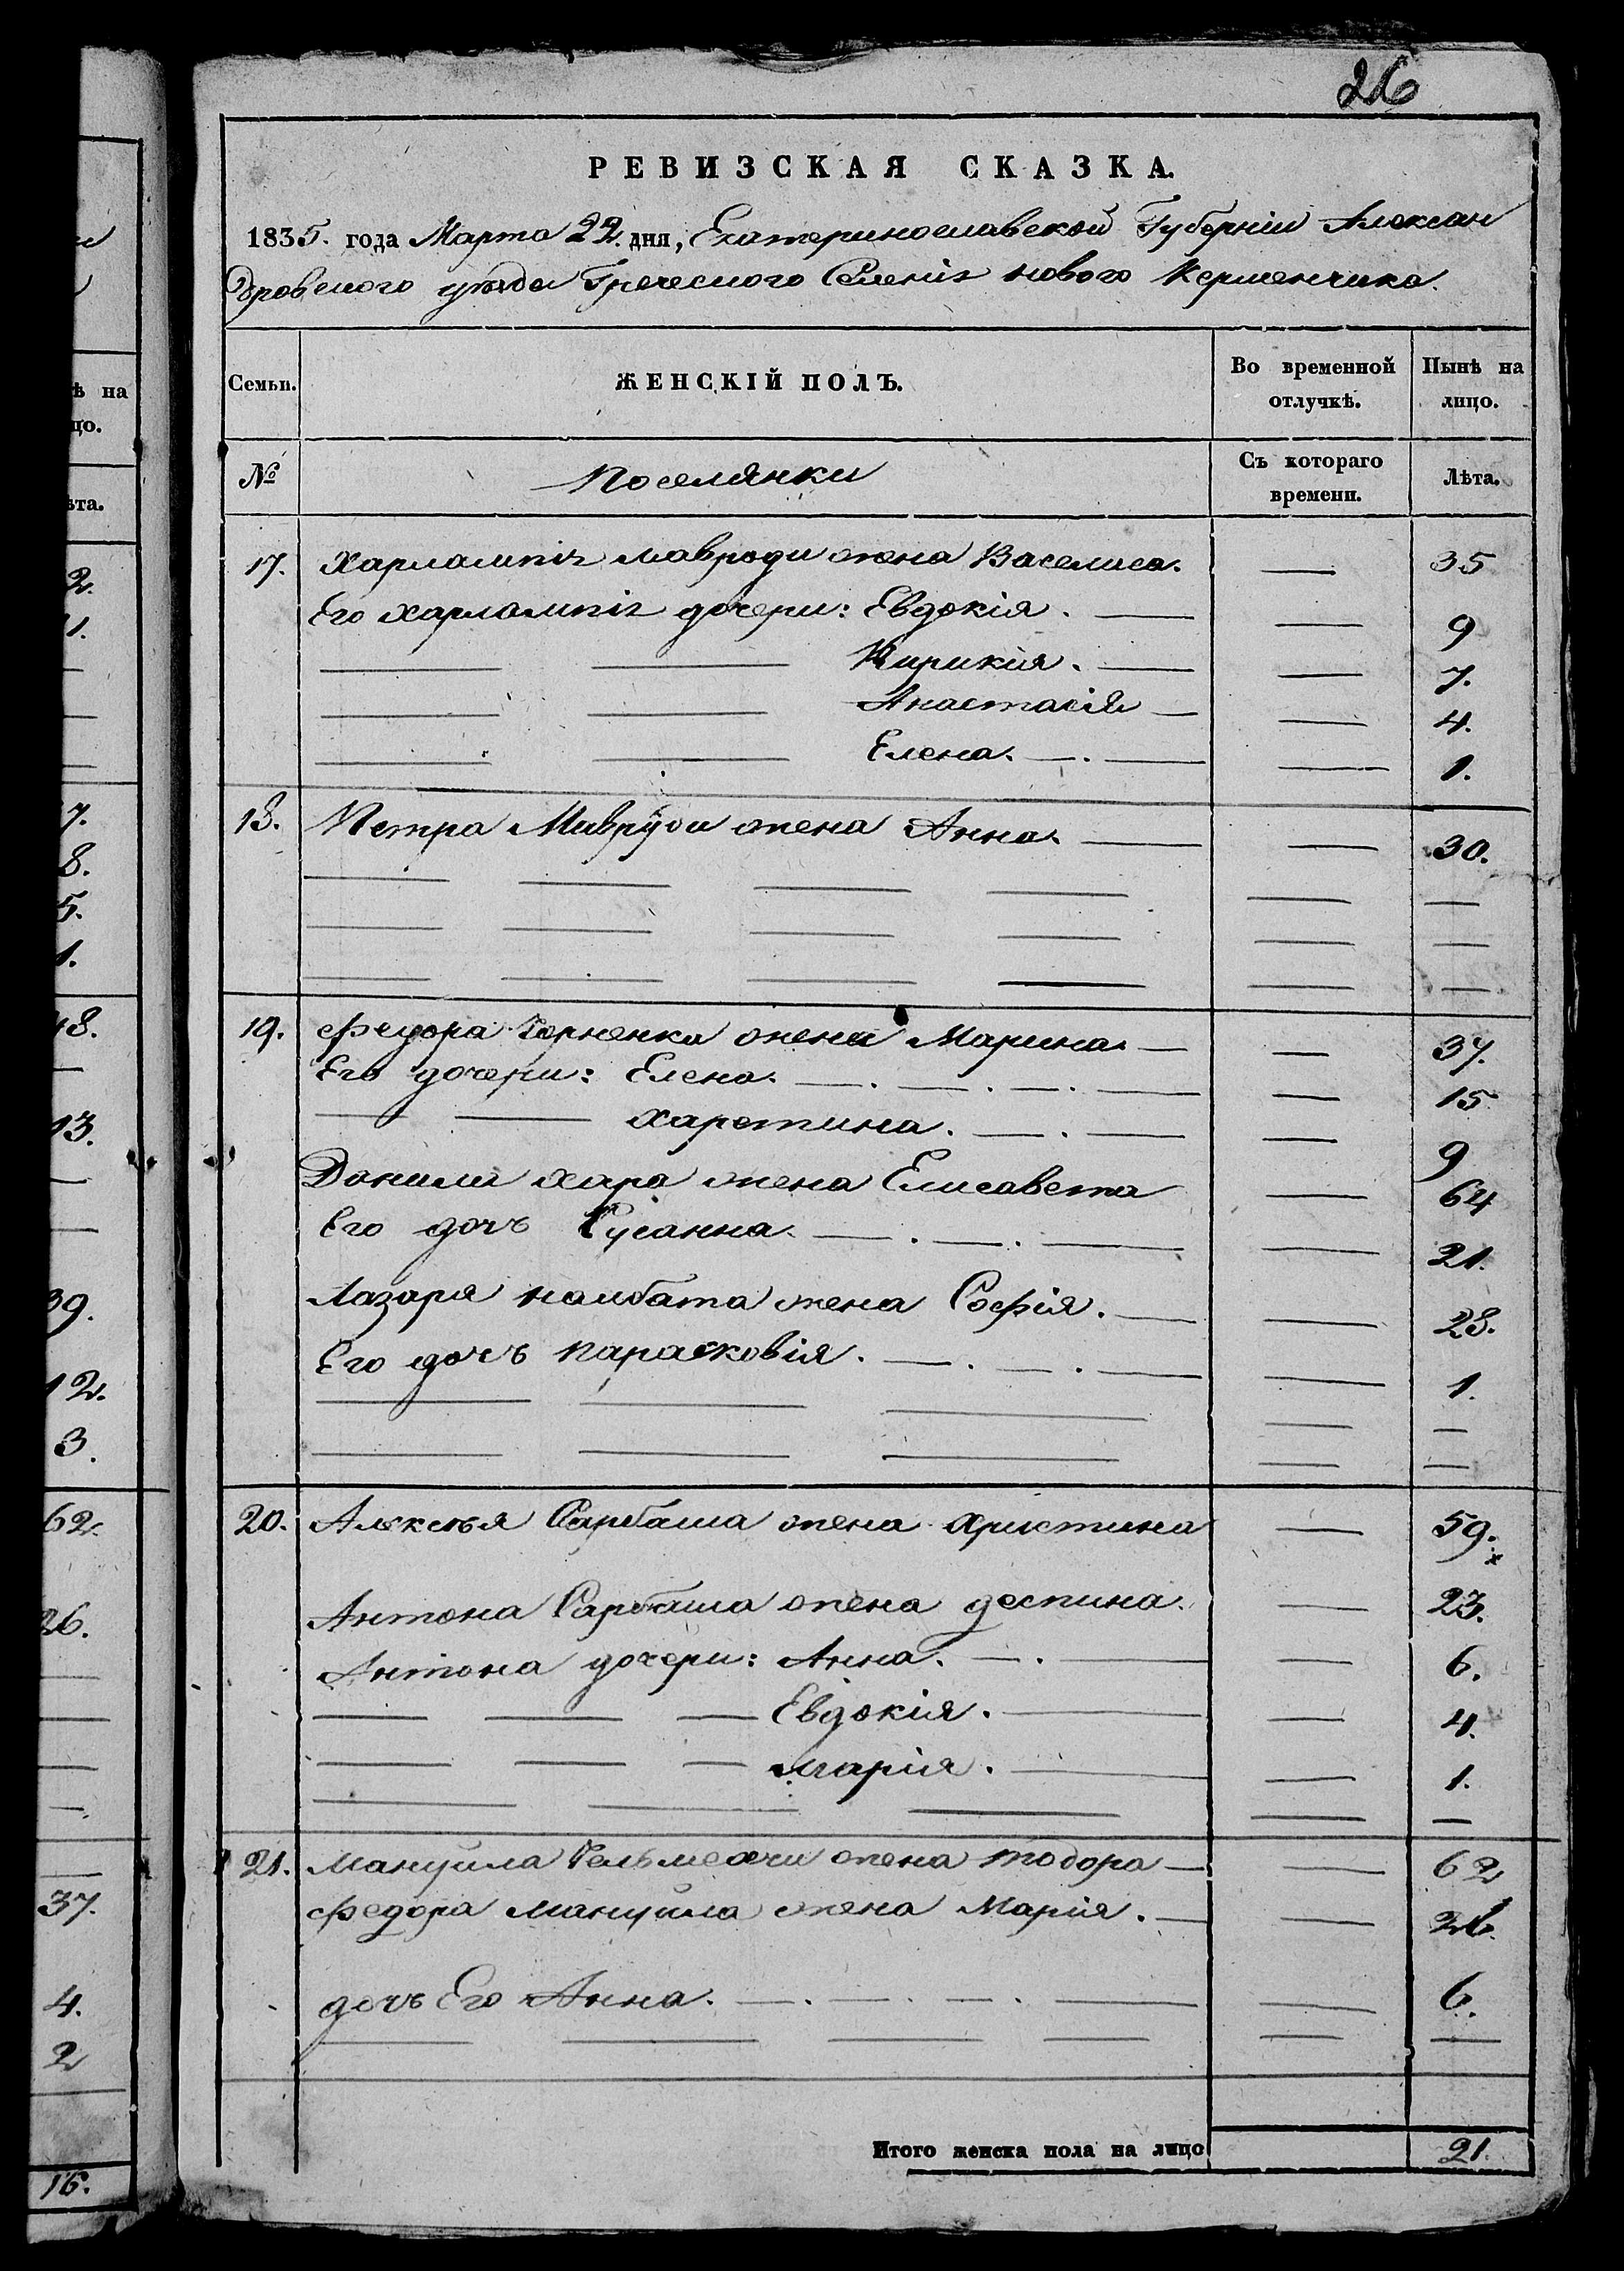 26
РЕВИЗСКАЯ СКАЗКА.
1835. года Марта 22. дня, Екатеринославской Губерніи Алексан
дровского уѣзда Греческого Селенія нового Керменчика.
Семьи. ЖЕНСКІЙ ПОЛЪ. Во временной отлучкѣ. Нынѣ на лицо.
№ Поселянки Съ котораго времени. Лѣта.
17. Харлампія мавроди жена Васелиса. — 35
Его харлампія дочери: Евдокія. — — 9
— — Кирикия. — — 7.
— — Анастасія — — 4.
— — Елена. — . — — 1.
18. Петра Мавроди жена Анна. — — 30.
19. Федора жена Марина. — — 37.
Его дочери: Елена. — . — . — . — — 15
— — Харетина. — . — — 9
Данила хара жена Елисавета — 64
Его дочъ Сусанна. — . — . — — 21.
Лазаря жена Софія. — — 28.
Его дочъ парасковія. — . — . — — 1.
20. Алексѣя Сарбаша жена христина — 59.
Антона Сарбаша жена деспина. — 23.
Антона дочери: Анна. — . — — 6.
— — — Евдокія. — — 4.
— — — марія. — — 1.
21. Мануила жена тодора — — 62
федора мануила жена Марія. — — 26.
дочъ Его Анна. — . — . — . — — 6.
Итого женска пола на лицо 21.
ѣ на
цо.
ѣта.
2.
1.
7.
8.
5.
1.
48.
13.
39.
12.
3.
62.
26.
37.
4.
2
16.